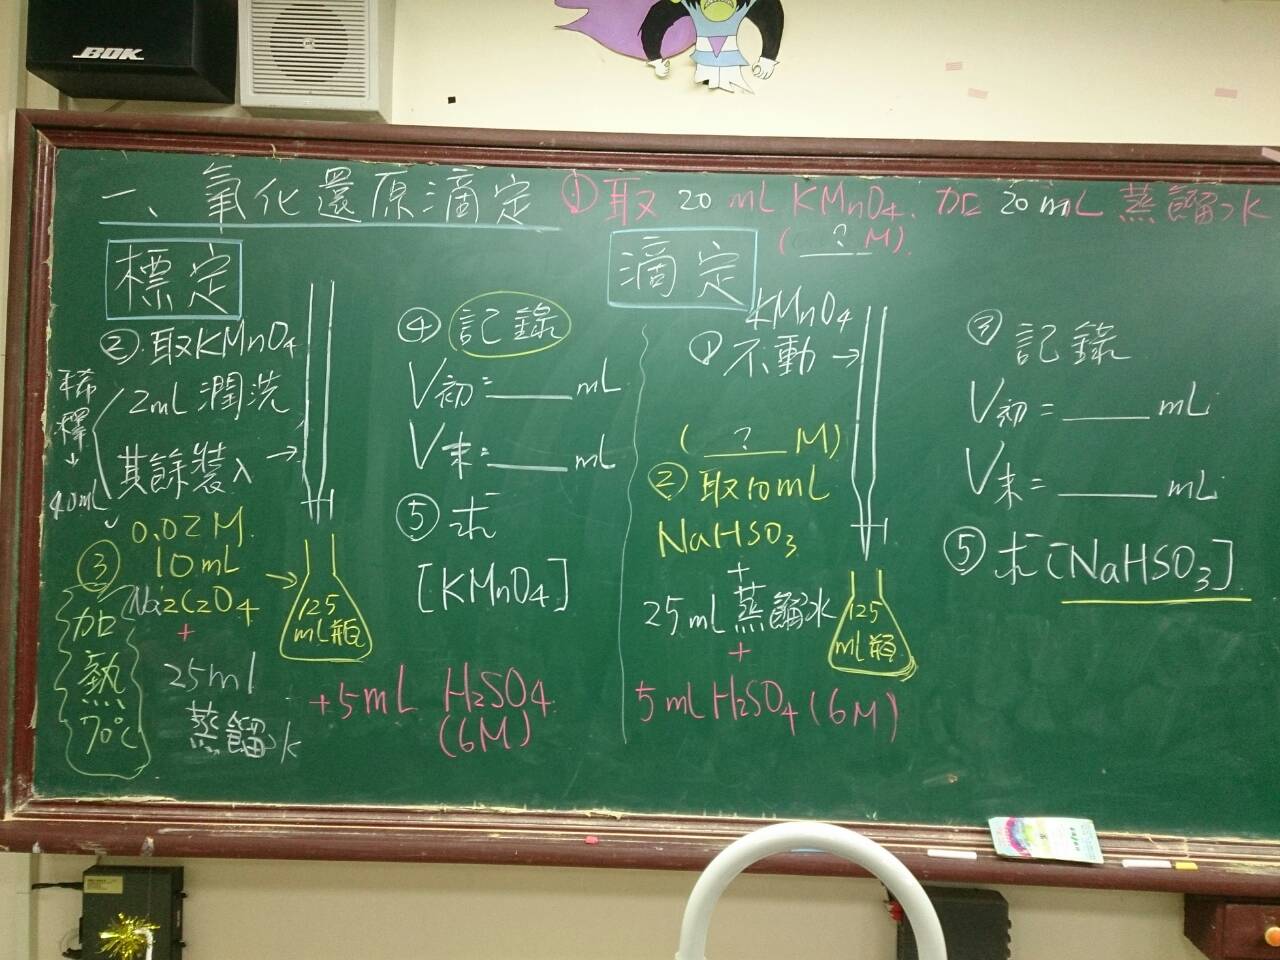 BOK
一、氧化還原滴定 ①取 20 mL KMnO4. 加 20 mL 蒸餾水
( ? M)
標定
②取KMnO4
2mL 潤洗
其餘裝入 →
稀釋→40mL
0.02M
③ 10mL
Na2C2O4 →
+
25ml
蒸餾水
加熱70℃
125
ml瓶
+5mL H2SO4
(6M)
④記錄
V初=____mL
V末=____mL
⑤求
[KMnO4]
滴定
KMnO4
①不動→
( ? M)
②取10mL
NaHSO3
+
25ml 蒸餾水
+
5ml H2SO4 (6M)
125
ml瓶
③記錄
V初=____mL
V末=____mL
⑤求[NaHSO3]